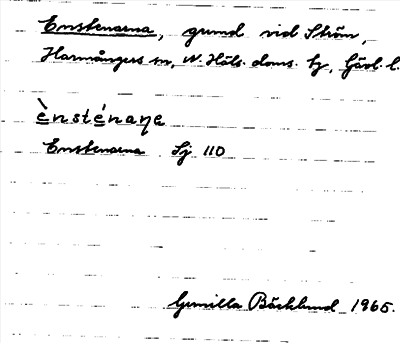 Enstenarna, grund vid Ström,
Harmångers sn, N. Häls. doms. tg, Gävl. l.
ènsténaɳe
Enstenarna Sj 110
Gunilla Bäcklund 1965.